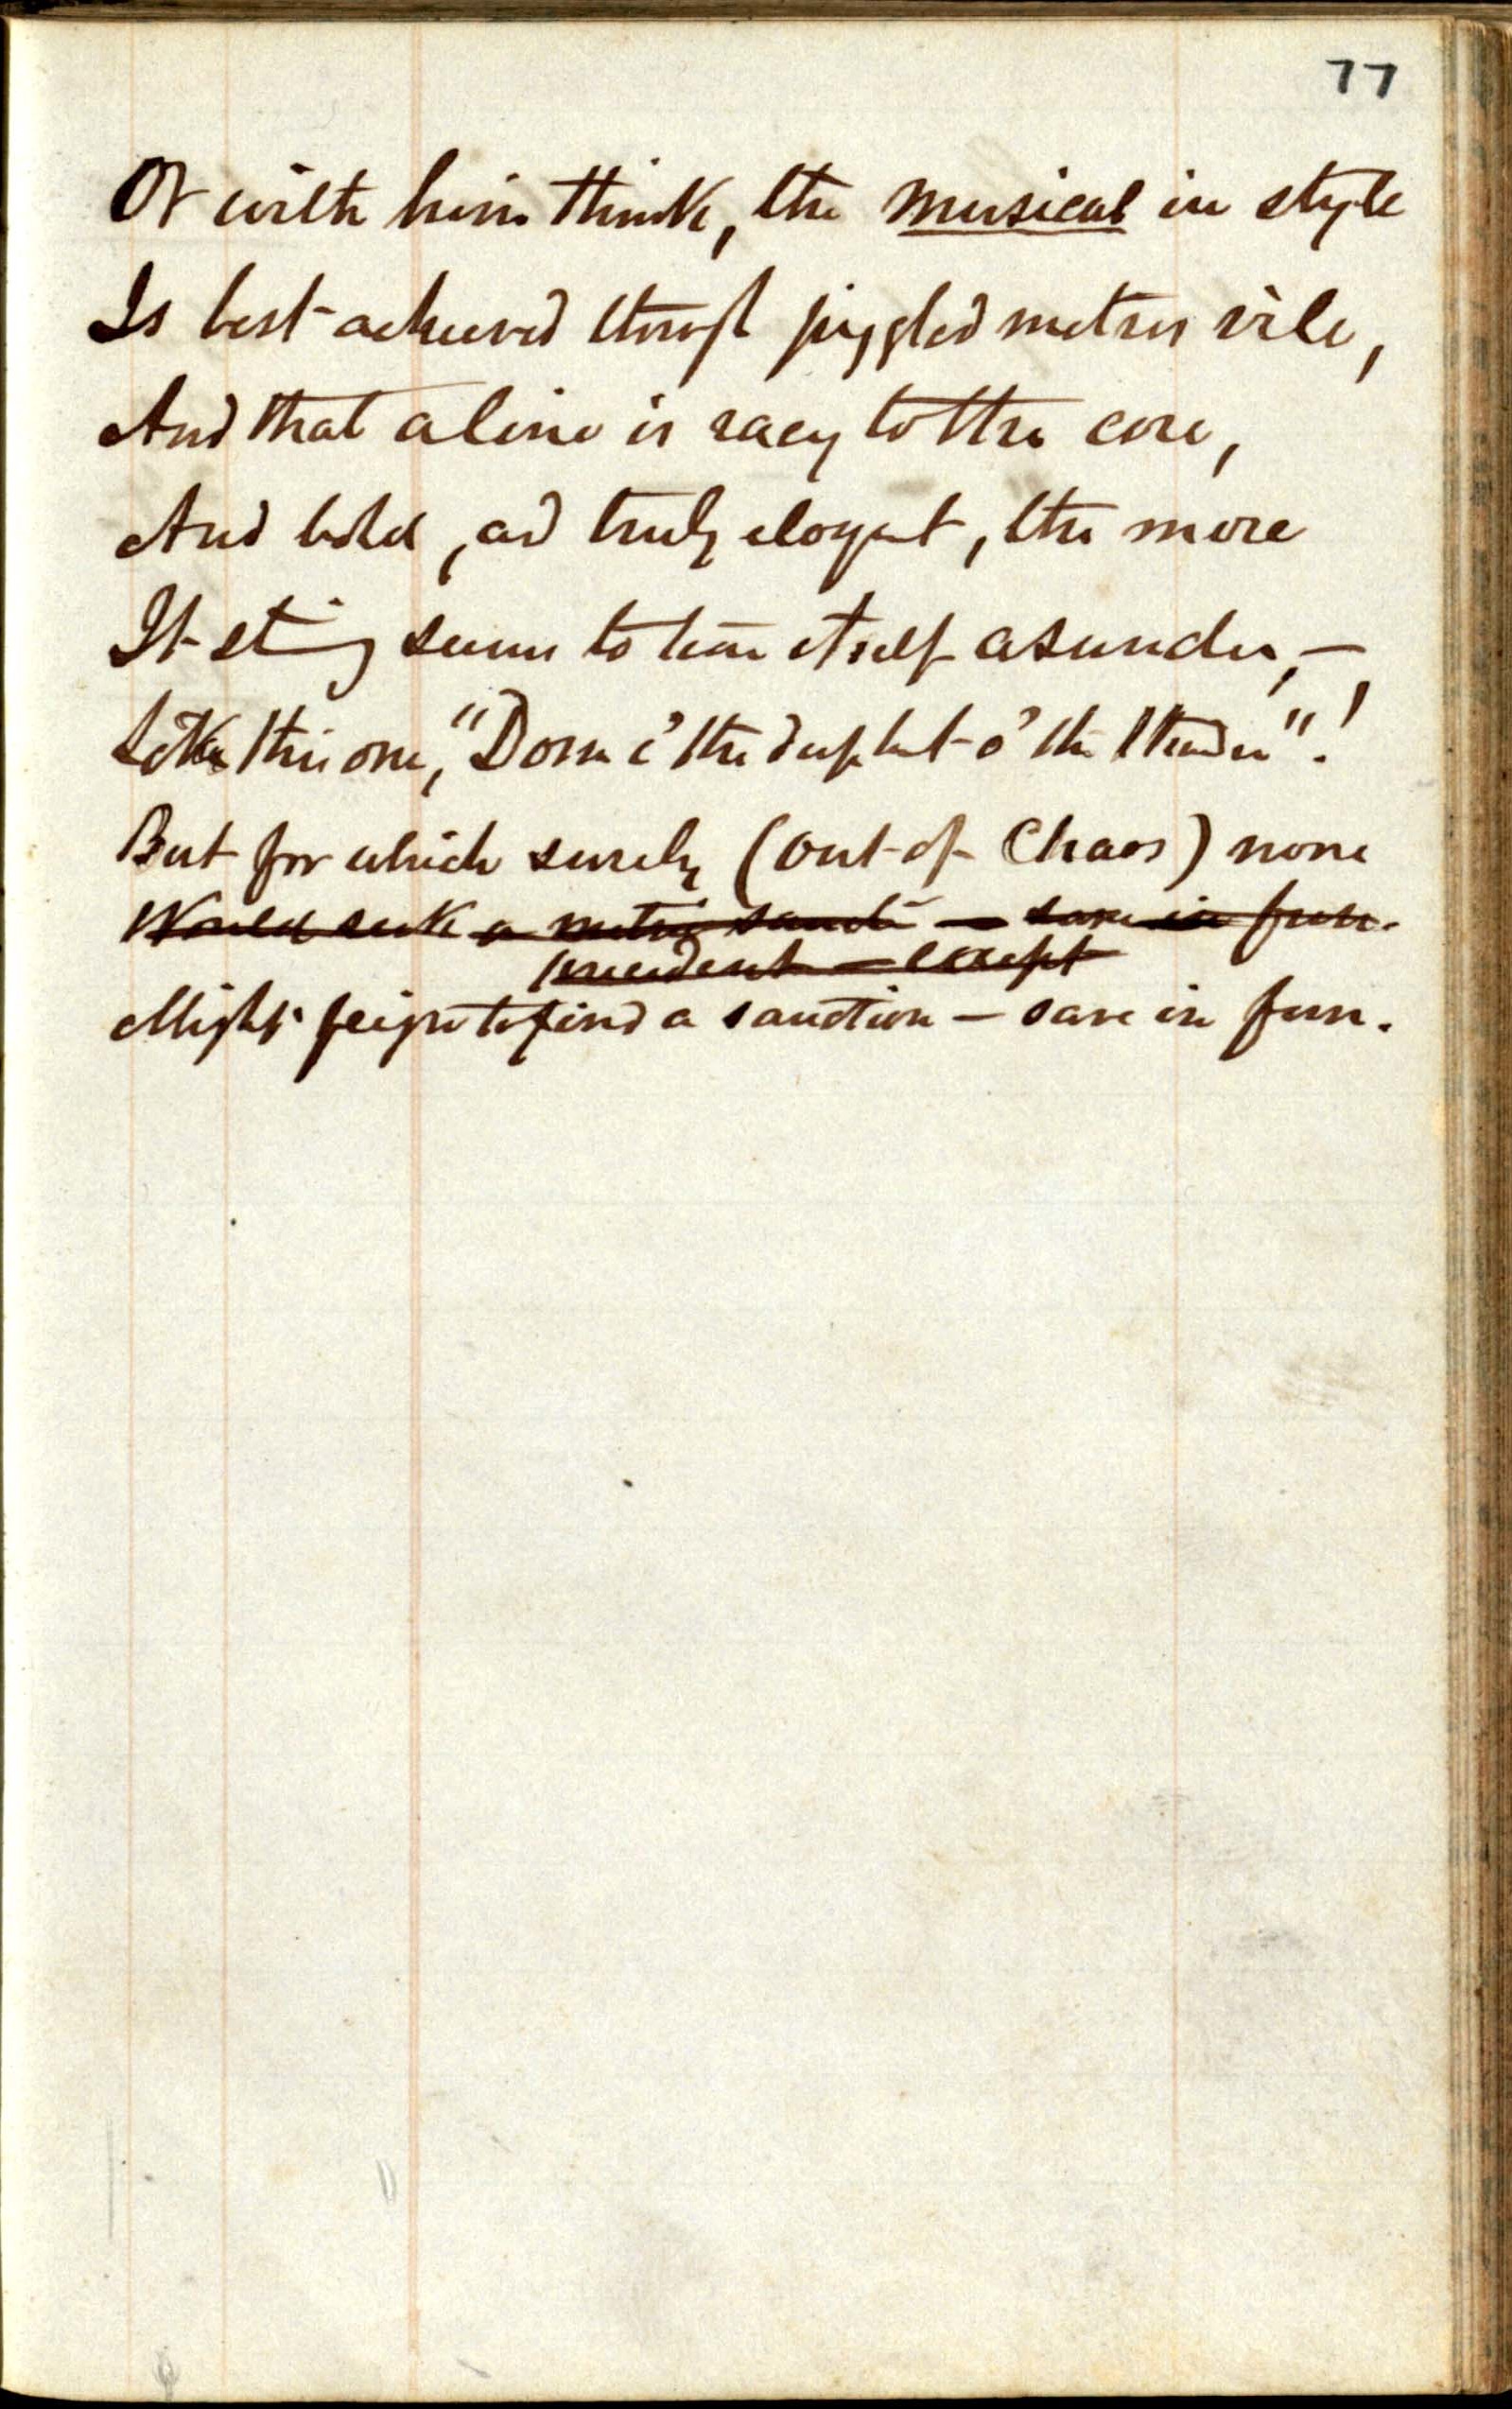 77
Or with him think, the musical in style
Is best achieved through juggled metres vile,
And that a line is racy to the core,
And bold, and truly eloquent, the more
It string seems to tear itself asunder, —
Like this one, "Down i' the deep heart o' the thunder"!
But for which surely (out of Chaos) none
Would seek a metric sancti — save in fun.
precedent — except
Might feign to find a sanction — save in fun.